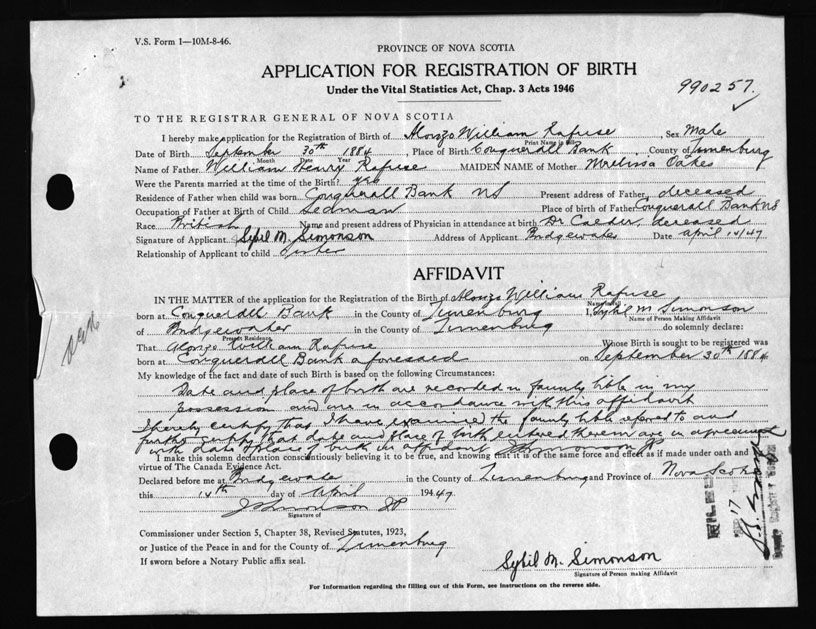 V.S. Form 1—10M-8-46.
PROVINCE OF NOVA SCOTIA
APPLICATION FOR REGISTRATION OF BIRTH
Under the Vital Statistics Act, Chap. 3 Acts 1946
990257
TO THE REGISTRAR GENERAL OF NOVA SCOTIA
I hereby make application for the Registration of Birth of Alonzo William Rafuse, Sex Male
Print Name in
Date of Birth September 30th 1884, Place of Birth Conquerall Bank County of Lunenburg
Month Date Year
Name of Father William Henry Rafuse MAIDEN NAME of Mother Melissa Oakes
Were the Parents married at the time of the Birth? yes
Residence of Father when child was born Conquerall Bank NS Present address of Father deceased
Occupation of Father at Birth of Child Seaman Place of birth of Father Conquerall Bank NS
Race British Name and present address of Physician in attendance at birth Dr Calder, deceased
Signature of Applicant Sybil M. Simonson Address of Applicant Bridgewater Date April 14/47
Relationship of Applicant to child Sister
AFFIDAVIT
IN THE MATTER of the application for the Registration of the Birth of Alonzo William Rafuse
Name in full
born at Conquerall Bank in the County of Lunenburg I, Sybil M Simonson
Name of Person Making Affidavit
of Bridgewater in the County of Lunenburg do solemnly declare:
Present Residence
That Alonzo William Rafuse Whose Birth is sought to be registered was
born at Conquerall Bank aforesaid on September 30th 1884
My knowledge of the fact and date of such Birth is based on the following Circumstances:
Date and place of birth are recorded in family bible in my
possession and are in accordance with this affidavit
I hereby certify that I have examined the family bible referred to and
further certify that date and place of birth entered therein are in agreement
with date & place of birth in affidavit JP
I make this solemn declaration conscientiously believing it to be true, and knowing that it is of the same force and effect as if made under oath and by
virtue of The Canada Evidence Act.
Declared before me at Bridgewater in the County of Lunenburg and Province of Nova Scotia
this 14th day of April 1947
JP
Signature of
Commissioner under Section 5, Chapter 38, Revised Statutes, 1923,
or Justice of the Peace in and for the County of Lunenburg
If sworn before a Notary Public affix seal.
Sybil M. Simonson
Signature of Person making Affidavit
For Information regarding the filling out of this Form, see instructions on the reverse side.
FILED
17